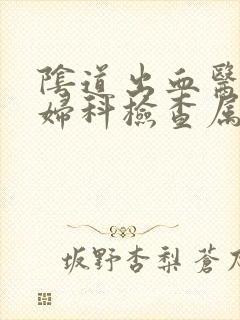 陰道出血醫
婦科檢查屬
坂野杏梨 蒼